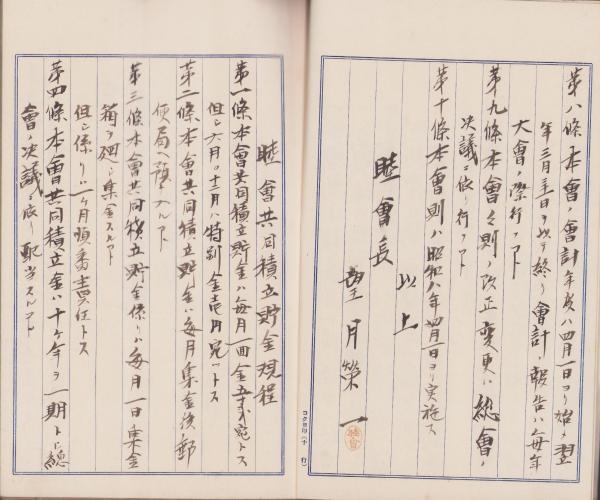 第八條本會ノ會計年度ハ四月一日ヨリ始メ翌
年三月三十一日ヲ以テ終リ會計ノ報告ハ毎年
大會ノ際行フコト
第九條本會々則改正変更ハ総會ノ
決議ニ依リ行フコト
第十條本會則ハ昭和八年四月一日ヨリ実施ス
以上
睦會長
望月榮一
睦會共同積立貯金規程
第一條本會共同積立貯金ハ毎月一回金五十戔宛トス
但シ六月ト十二月ハ特別金壱円宛トス
第二條本會共同積立貯金ハ毎月集金後郵
便局ヘ預ケ入ルコト
第三條本會共同積立貯金係リハ毎月一日集金
箱ヲ廻シ集金スルコト
但シ係リハ一ヶ月順番責任トス
第四條本會共同積立金ハ十ヶ年ヲ一期トシ總
會ノ決議ニ依リ配当スルコト
コクヨ印(十行)